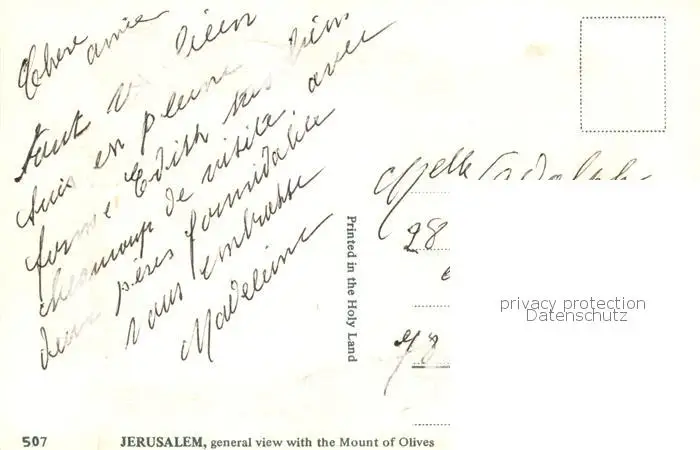 Chere amie
tout va bien
suis en pleine
forme Edith tres bien
beaucoup de visite avec
deux pères formidables
vous embrasse
Madeleine
Printed in the Holy Land
Melle
28
98
privacy protection
Datenschutz
507 JERUSALEM, general view with the Mount of Olives